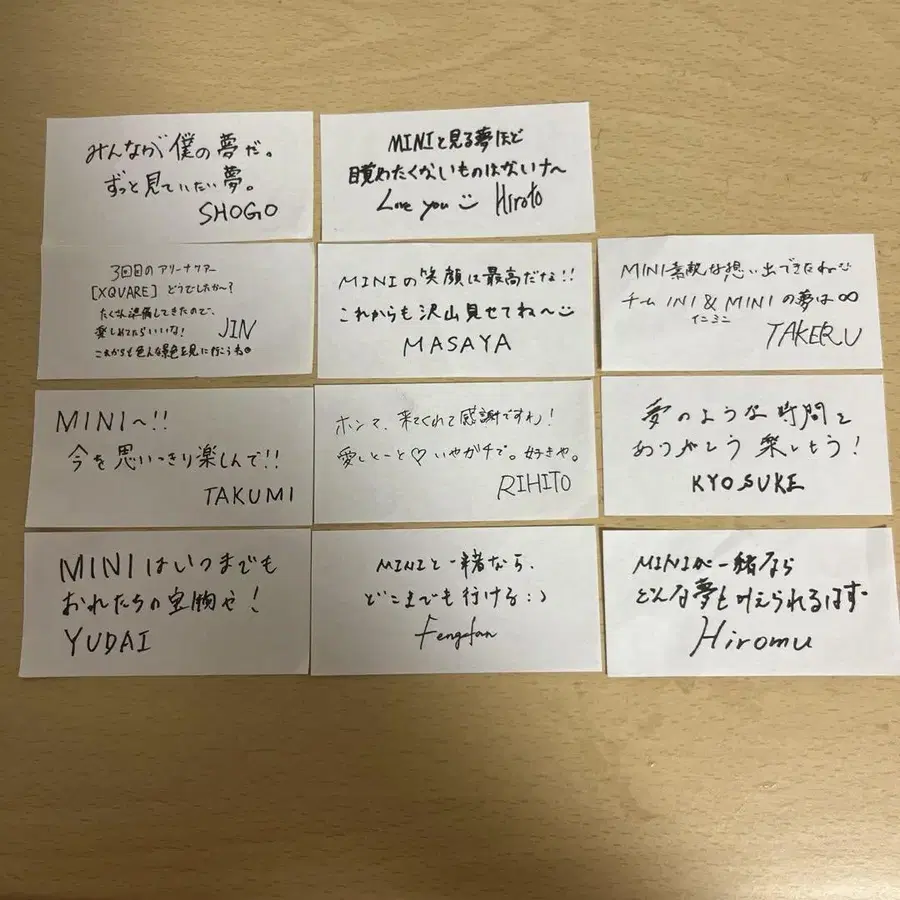 みんなが僕の夢だ。
ずっと見ていたい夢。
SHOGO
MINIと見る夢ほど
目覚めたくないものはないナ〜
Love you Hiroto
3回目のアリーナツアー
[XQUARE] どうでしたか〜?
たくさん準備してきたので、
楽しめてたらいいな!
JIN
これからも色んな景色を見に行こうね
MINIの笑顔は最高だな!!
これからも沢山見せてね〜
MASAYA
MINI素敵な想い出できたね
チーム INI & MINI の夢は∞
イニミニ
TAKERU
MINI〜!!
今を思いっきり楽しんで!!
TAKUMI
ホンマ、来てくれて感謝ですわ!
愛しとーと♡いやガチで。好きや。
RIHITO
夢のような時間を
ありがとう 楽しもう!
KYOSUKE
MINIはいつまでも
おれたちの宝物や!
YUDAI
MINIと一緒なら、
どこまでも行ける:)
Fengfan
MINIが一緒なら
どんな夢も叶えられるはず
Hiromu